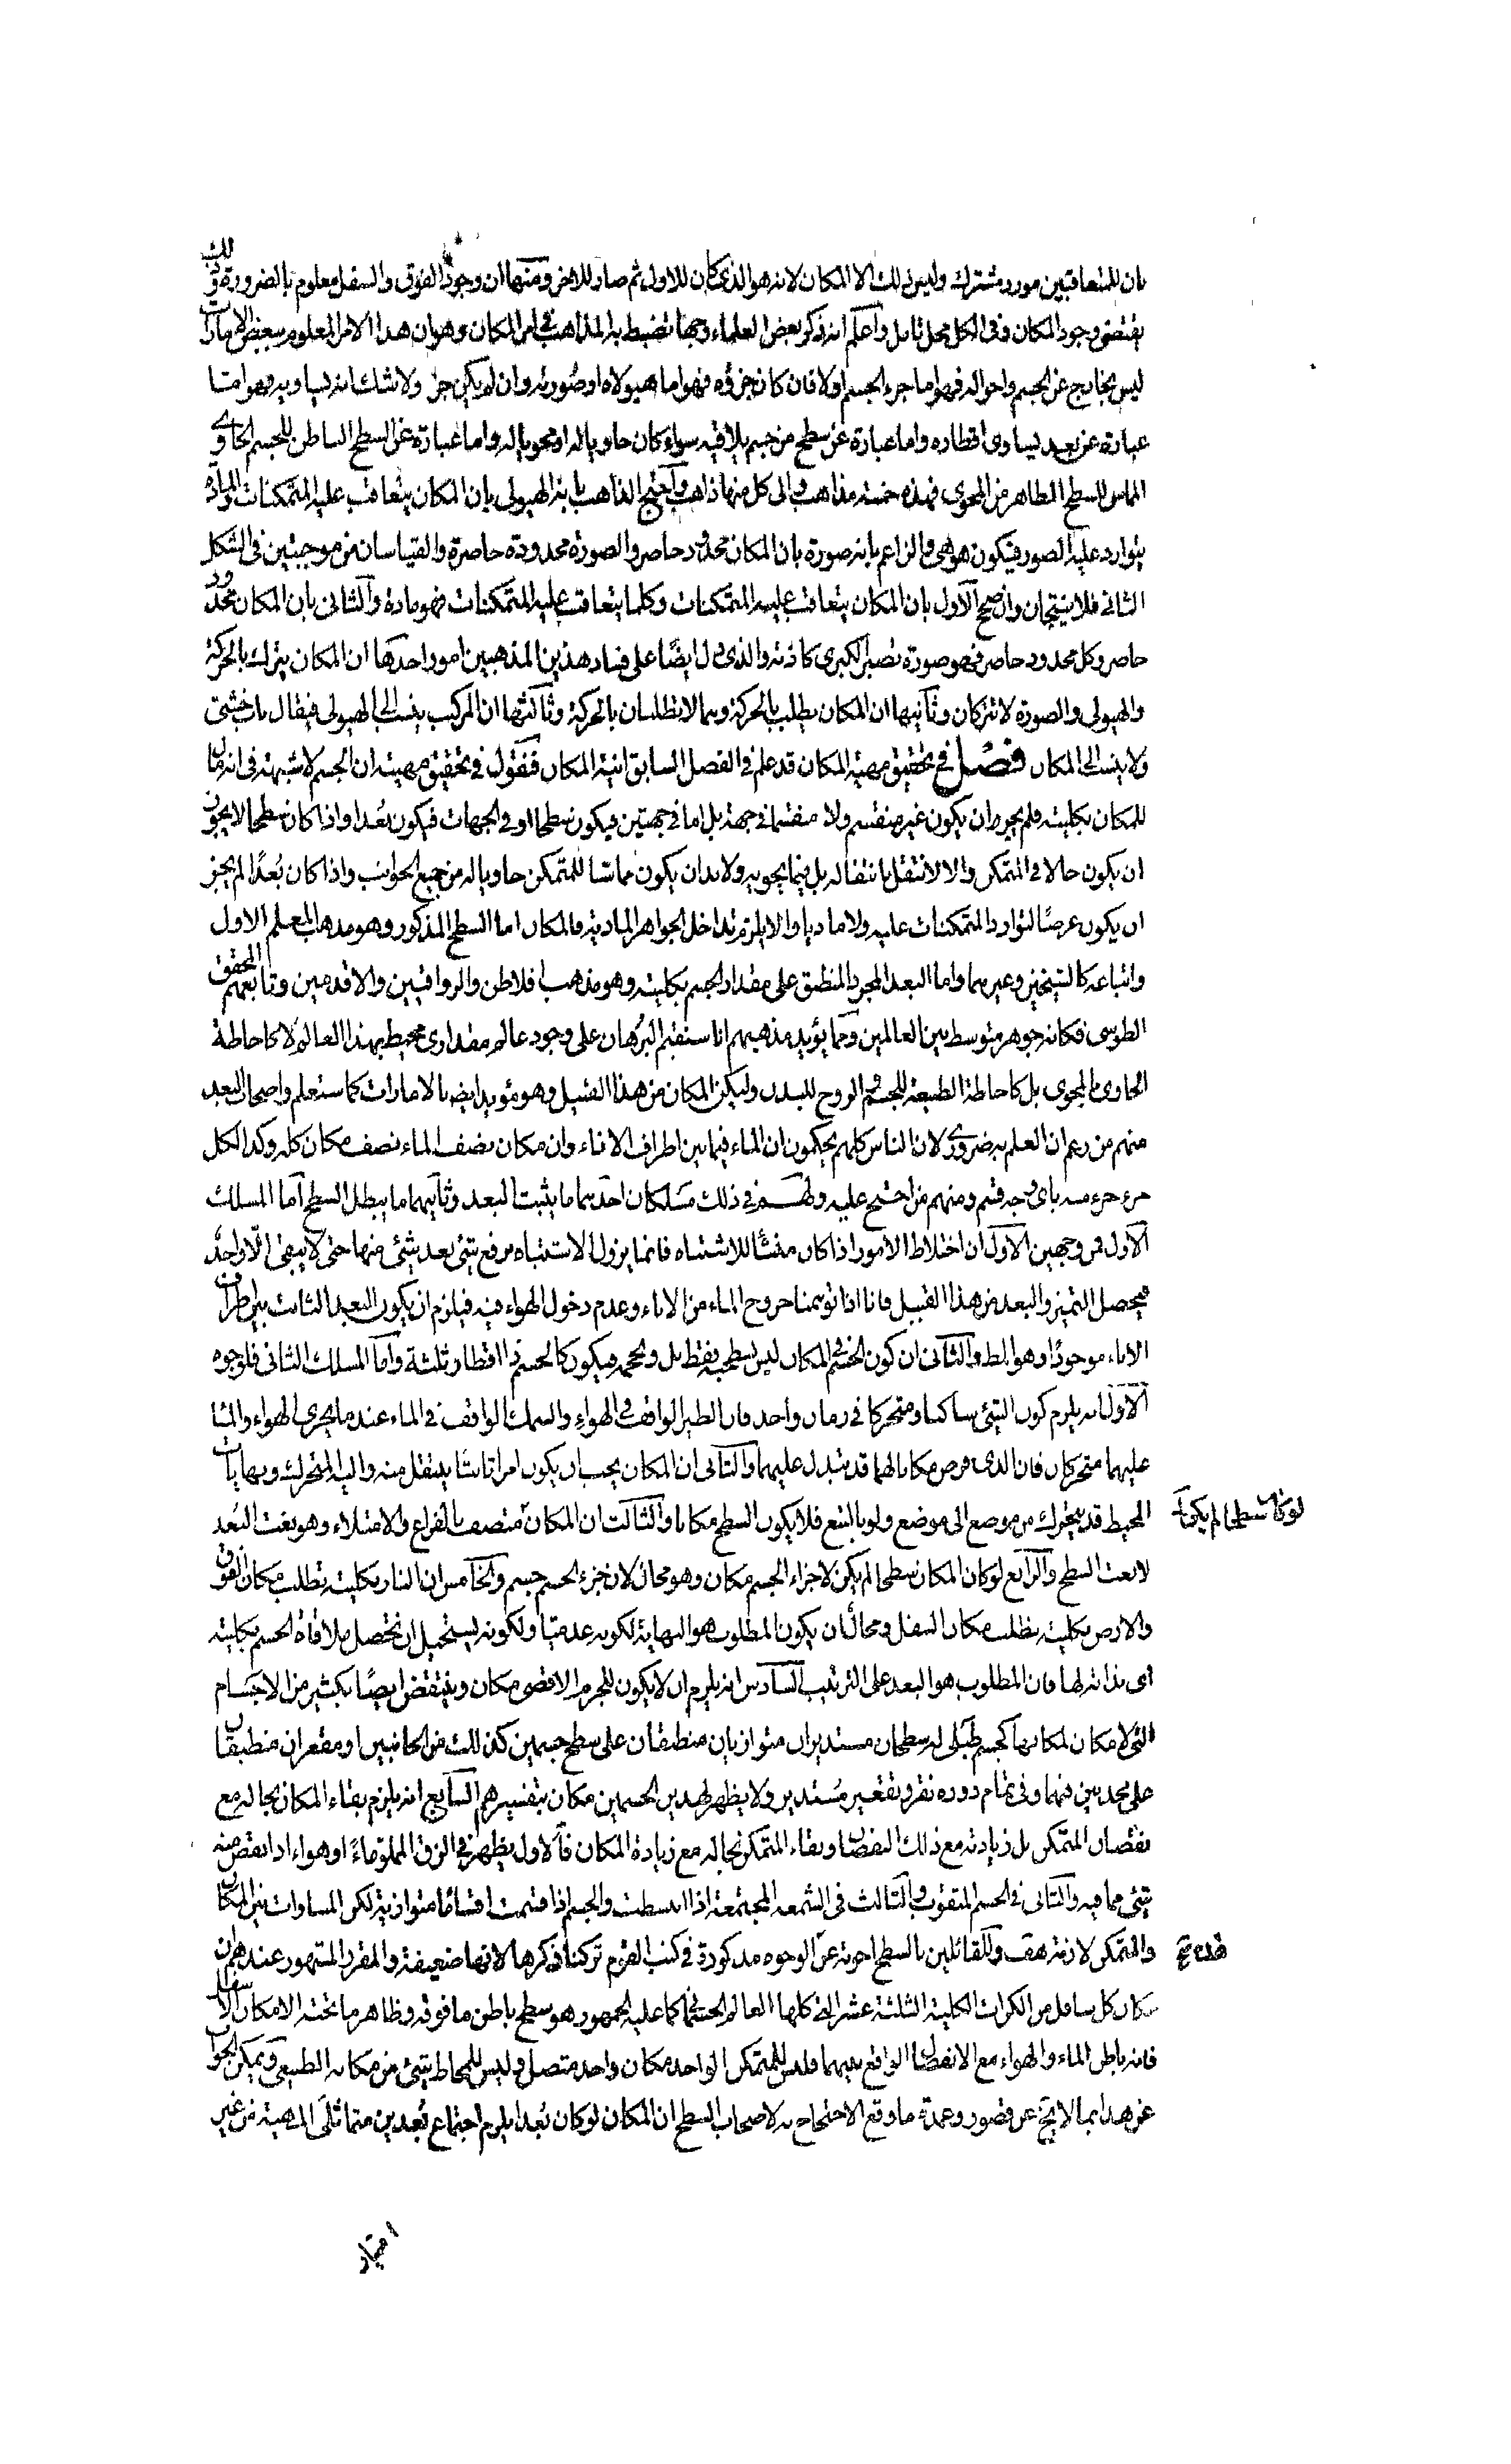 بان للمتعاقبين مورد مشترك وليس ذلك الا المكان لانه هو الذى كان للاول ثم صار للاخر ومنها ان وجود الفوق والسفل معلوم بالضرورة وذلك
يقتضى وجود المكان وفى الكل محل تامل واعلم انه ذكر بعض العلماء وجها تضبط به المذاهب فى امر المكان وهو ان هذا الامر المعلوم ببعض الامارات
ليس بخارج عن الجسم واحواله فهو اما جزء الجسم اولا فان كان جزؤه فهو اما هيولاه او صورته وان لم يكن جزء ولا شك انه يساويه فهو اما
عبارة عن بعد يساوى اقطاره واما عبارة عن سطح من جسم يلاقيه سواء كان حاويا له او محويا له واما عبارة عن السطح الباطن للجسم الحاوى
المماس للسطح الظاهر من المحوى فهذه خمسة مذاهب والى كل منها ذاهب واحتج الذاهب بانه الهيولى بان المكان يتعاقب عليه المتمكنات والمادة
يتوارد عليه الصور فيكون هو هى والزاعم بانه صورة بان المكان محدود حاصر والصورة محدودة حاصرة والقياسان من موجبتين فى الشكل
الثانى فلا ينتجان وان صحح الاول بان المكان يتعاقب عليه المتمكنات وكلما يتعاقب عليه المتمكنات فهو مادة والثانى بان المكان محدود
حاصر وكل محدود حاصر فهو صورة تصير الكبرى كاذبة والذى دل ايضا على فساد هذين المذهبين امور احدها ان المكان يترك بالحركة
والهيولى والصورة لا تتركان وثانيها ان المكان يطلب بالحركة وهما لا يطلبان بالحركة وثالثها ان المركب ينسب الى الهيولى فيقال باب خشبى
ولا ينسب الى المكان فصل فى تحقيق مهية المكان قد علم فى الفصل السابق انية المكان فنقول فى تحقيق مهيته ان الجسم لا شبهة فى انه مال
للمكان بكليته فلم يجز ان يكون غير منقسم ولا منقسما فى جهة بل اما فى جهتين فيكون سطحا او فى الجهات فيكون بعدا واذا كان سطحا لا يجوز
ان يكون حالا فى المتمكن والا لانتقل بانتقاله بل فيما يحويه ولا بد ان يكون مماسا للمتمكن حاويا له من جميع الجوانب واذا كان بعدا لم يجز
ان يكون عرضا لتوارد المتمكنات عليه ولا ماديا والا يلزم تداخل الجواهر المادية فالمكان اما السطح المذكور وهو مذهب المعلم الاول
واتباعه كالشيخين وغيرهما واما البعد المجرد المنطبق على مقدار الجسم بكليته وهو مذهب افلاطن والرواقيين والاقدمين وتابعهم المحقق
الطوسى فكانه جوهر متوسط بين العالمين ومما يؤيد مذهبهم انا سنقيم البرهان على وجود عالم مقدارى محيط بهذا العالم لا كاحاطة
الحاوى بالمحوى بل كاحاطة الطبيعة للجسم والروح للبدن وليكن المكان من هذا القبيل وهو مؤيد ايضا بالامارات كما ستعلم واصحاب البعد
منهم من زعم ان العلم به ضرورى لان الناس كلهم يحكمون ان الماء فيما بين اطراف الاناء وان مكان نصف الماء نصف مكان كله وكذا لكل
جزء جزء منه باى وجه قسم ومنهم من احتج عليه ولهم فى ذلك مسلكان احدهما ما يثبت البعد وثانيهما ما يبطل السطح اما المسلك
الاول فمن وجهين الاول ان اختلاط الامور اذا كان منشأ للاشتباه فانما يزول الاشتباه برفع شئ بعد شئ منها حتى لا يبقى الا واحد
فيحصل التميز والبعد من هذا القبيل فانا اذا توهمنا خروج الماء من الاناء وعدم دخول الهواء فيه فيلزم ان يكون البعد الثابت بين اطراف
الاناء موجودا وهو المط والثانى ان كون الجسم فى المكان ليس بسطحه فقط بل وبحجمه فيكون كالجسم ذا اقطار ثلثة واما المسلك الثانى فلوجوه
الاول انه يلزم كون الشئ ساكنا ومتحركا فى زمان واحد فان الطير الواقف فى الهواء والسمك الواقف فى الماء عند ما يجرى الهواء والماء
عليهما متحركان فان الذى فرض مكانا لهما قد يتبدل عليهما والثانى ان المكان يجب ان يكون امرا ثابتا ينتقل منه واليه المتحرك ونهايات
المحيط قد يتحرك من موضع الى موضع ولو بالتبع فلا يكون السطح مكانا والثالث ان المكان متصف بالفراغ والامتلاء وهو نعت البعد
لو كان سطحا لم يكن
لا نعت السطح والرابع لو كان المكان سطحا لم يكن لاجزاء الجسم مكان وهو محال لان جزء الجسم جسم والخامس ان النار بكليته يطلب مكان الفوق
والارض بكليته يطلب مكان السفل ومحال ان يكون المطلوب هو النهاية لكونه عدميا ولكونه يستحيل ان تحصل ملاقاة الجسم بكليته
اى بذاته لها فان المطلوب هو البعد على الترتيب السادس انه يلزم ان لا يكون للجرم الاقصى مكان وينتقض ايضا بكثير من الاجسام
التى لا مكان لمكانها كجسم طبلى له سطحان مستديران متوازيان منطبقان على سطح جسمين كذلك من الجانبين او مقعران منطبقان
على محدبين فيهما وفى تمام دوره نقر وتقعير مستدير ولا يظهر لهذين الجسمين مكان بتفسيرهم السابع انه يلزم بقاء المكان بحاله مع
نقصان المتمكن بل زيادته مع ذلك النقصان وبقاء المتمكن بحاله مع زيادة المكان فالاول يظهر فى الزق المملو ماء او هواء اذا نقص منه
شئ مما فيه والثانى فى الجسم المثقوب والثالث فى الشمعة المجتمعة اذا انبسطت والجسم اذا قسمت اقساما متوازية لكن المساوات بين المكان
والمتمكن لازمة هف وللقائلين بالسطح اجوبة عن الوجوه مذكورة فى كتب القوم تركنا ذكرها لانها ضعيفة والمقرر المشهور عندهم ان
مكان كل سافل من الكرات الكلية الثلثة عشر التى كلها العالم الجسمانى كما عليه الجمهور هو سطح باطن ما فوقه وظاهر ما تحته الا مكان الاسفل
فانه باطن الماء والهواء مع الانفصال الواقع بينهما فليس للمتمكن الواحد مكان واحد متصل وليس للمحاط بشئ من مكانه الطبيعى ويمكن الجواب
عن هذا بما لا يخ عن قصور وعمدة ما وقع الاحتجاج به لاصحاب السطح ان المكان لو كان بعدا يلزم اجتماع بعدين متماثلى المهية من غير
امتياز